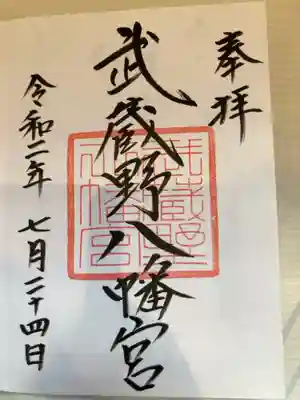 奉拝
武蔵野八幡宮
令和二年 七月二十四日
武蔵野八幡宮